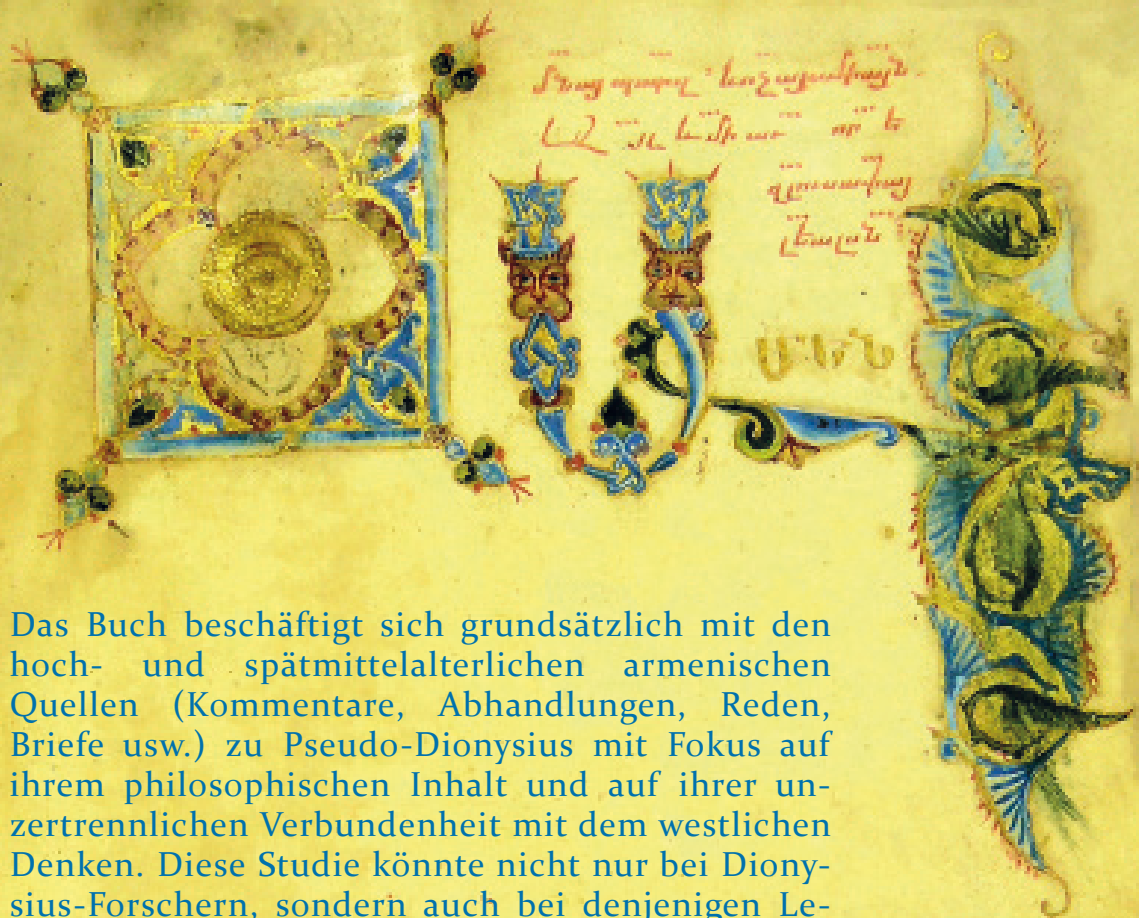 ԱՄԵՆ
Das Buch beschäftigt sich grundsätzlich mit den
hoch- und spätmittelalterlichen armenischen
Quellen (Kommentare, Abhandlungen, Reden,
Briefe usw.) zu Pseudo-Dionysius mit Fokus auf
ihrem philosophischen Inhalt und auf ihrer un-
zertrennlichen Verbundenheit mit dem westlichen
Denken. Diese Studie könnte nicht nur bei Diony-
sius-Forschern, sondern auch bei denjenigen Le-